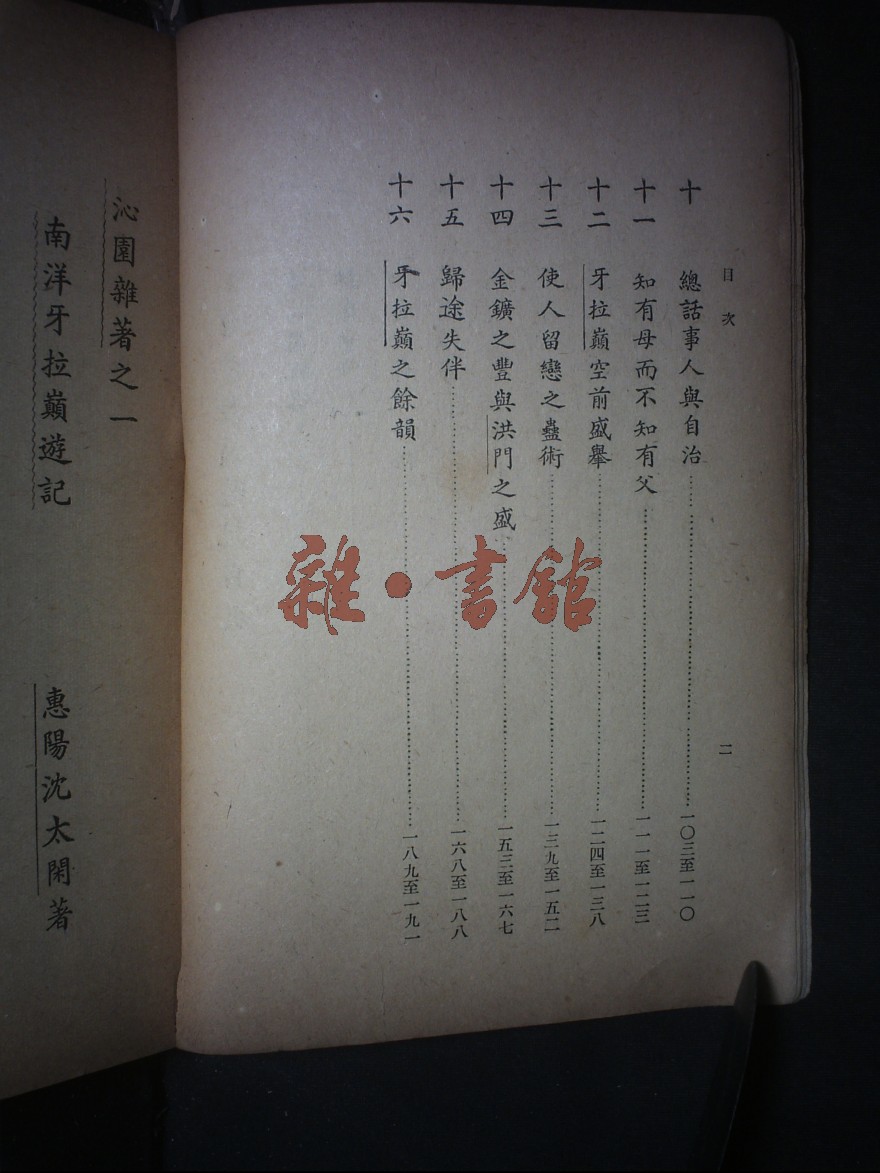 目次
十 總話事人與自治 一〇三至一一〇
十一 知有母而不知有父 一一一至一二三
十二 牙拉巔空前盛舉 一二四至一三八
十三 使人留戀之蠱術 一三九至一五二
十四 金鑛之豐與洪門之盛 一五三至一六七
十五 歸途失伴 一六八至一八八
十六 牙拉巔之餘韻 一八九至一九一
二
沁園雜著之一
南洋牙拉巔遊記
惠陽沈太閑著
雜·書館